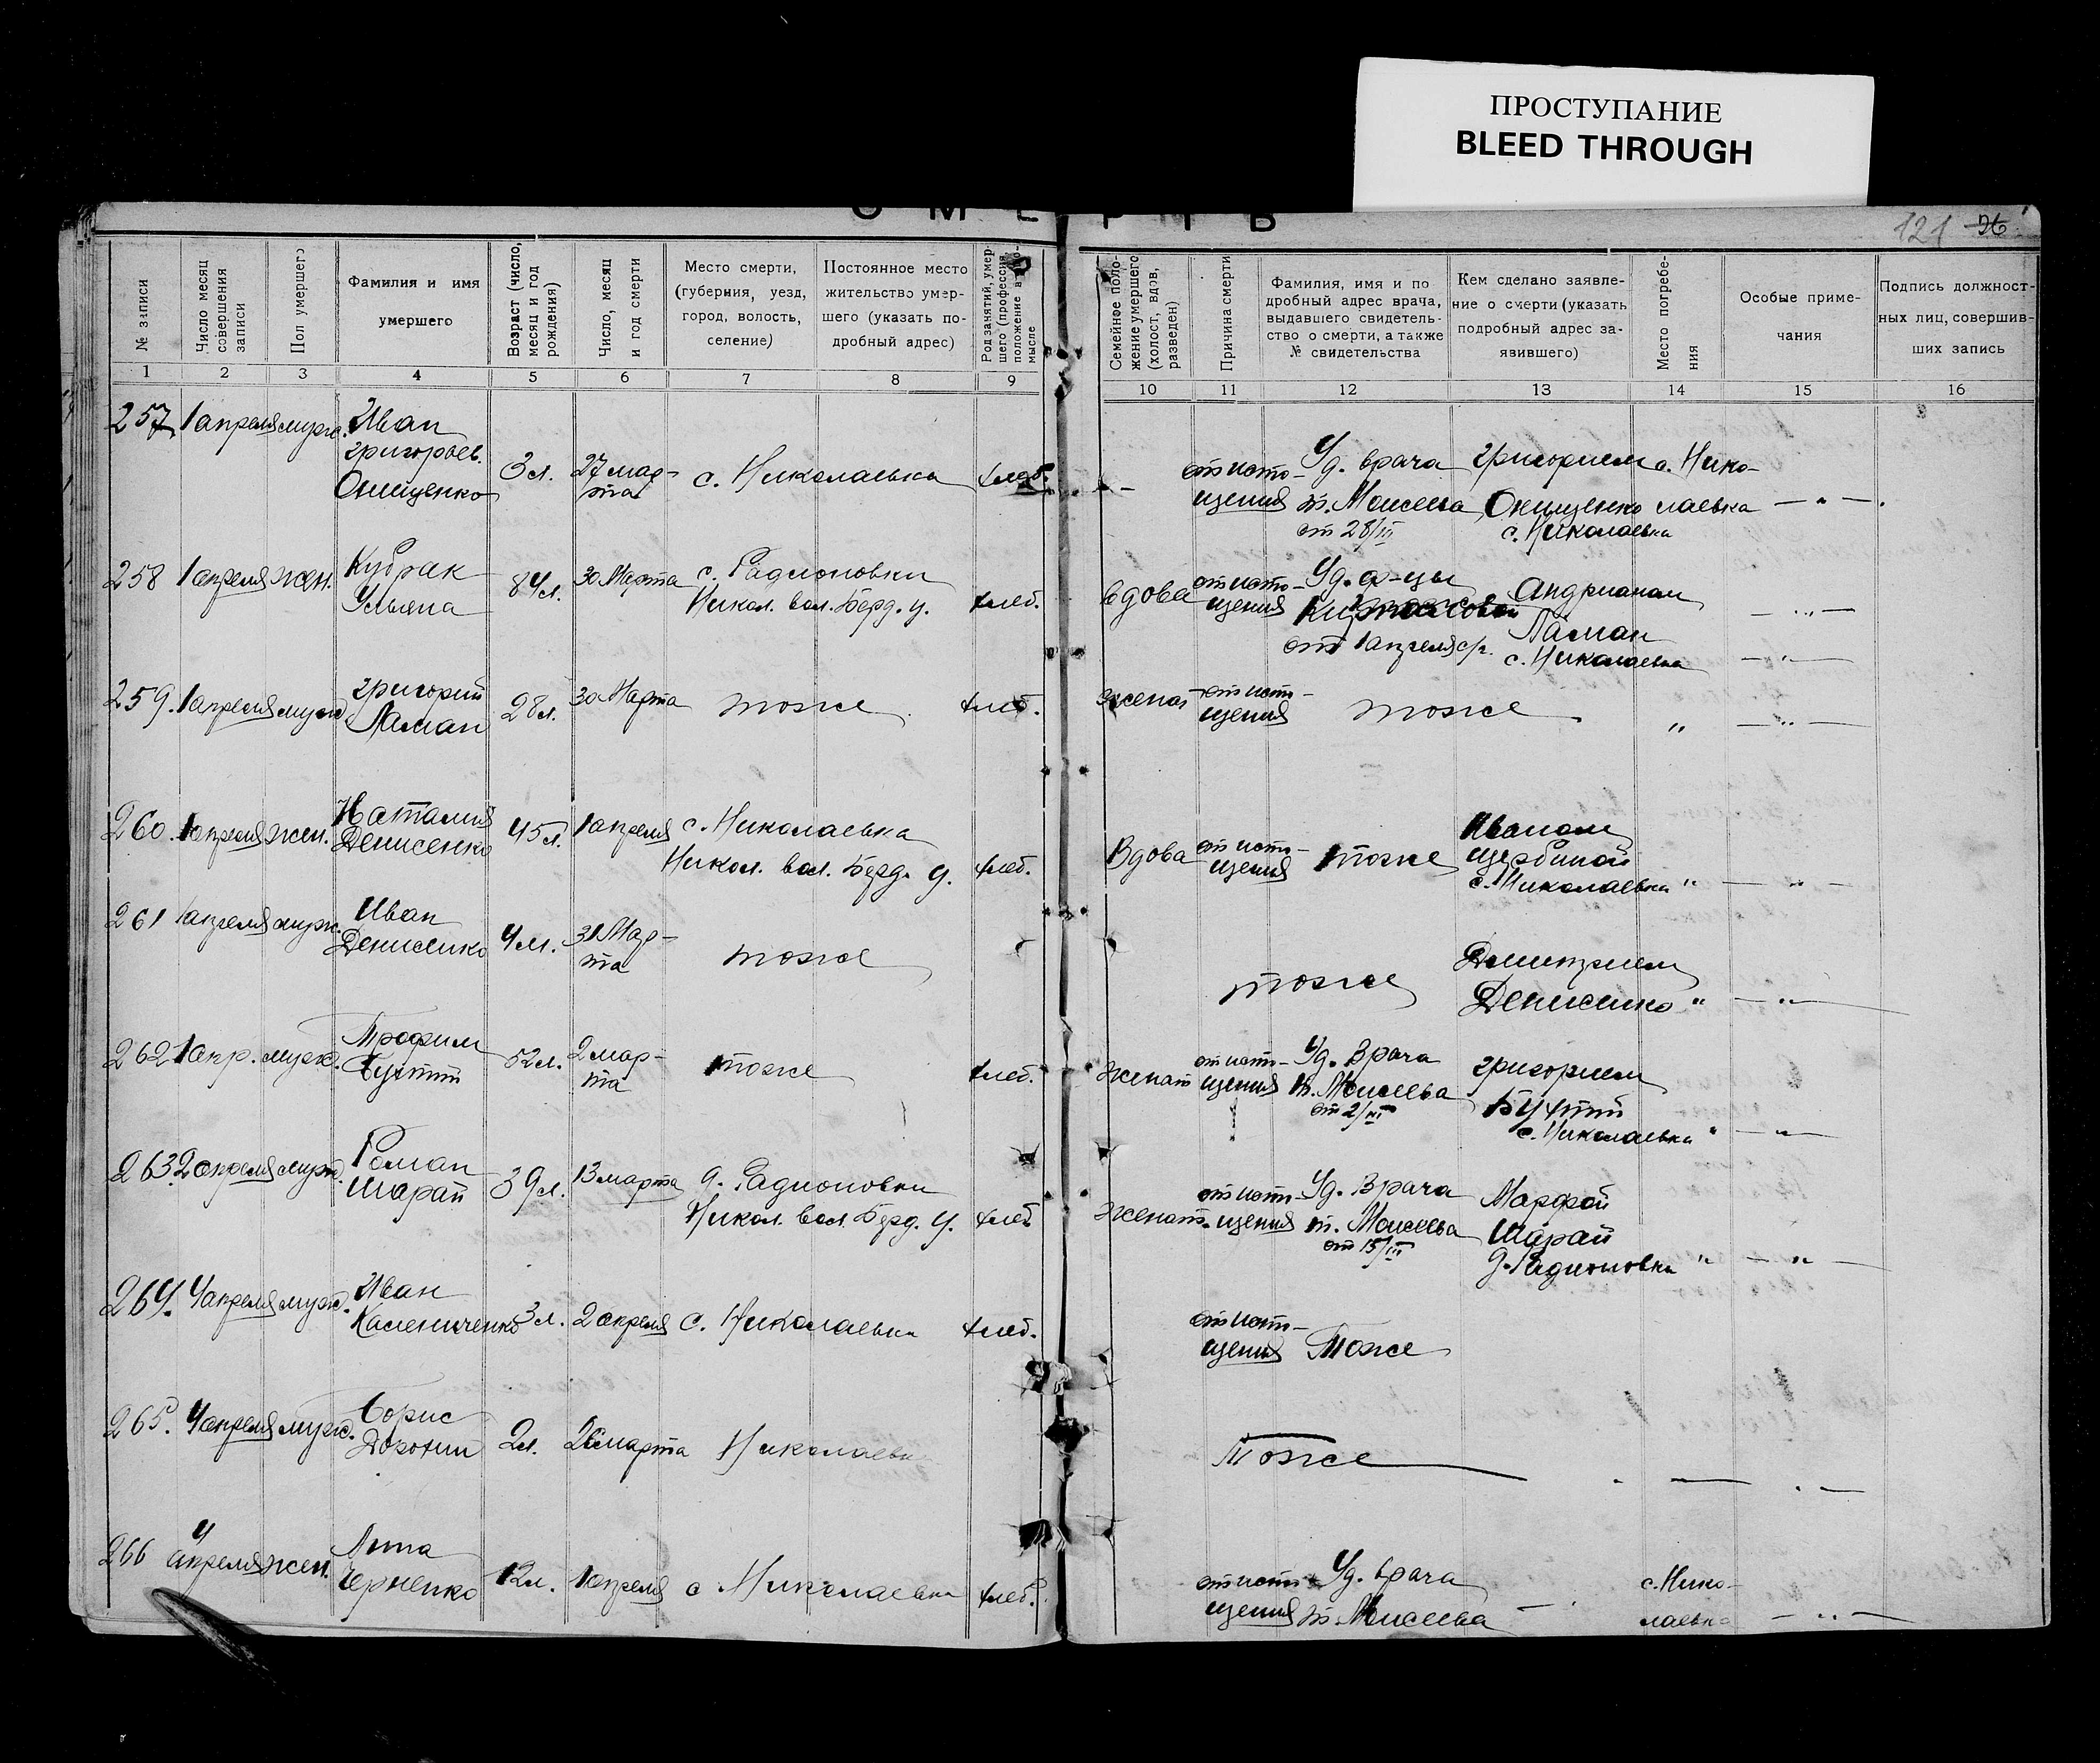 ПРОСТУПАНИЕ
BLEED THROUGH
121 26
№ записи
Число месяц совершения записи
Пол умершего
Фамилия и имя умершего
Возраст (число, месяц и год рождения)
Число, месяц и год смерти
Место смерти, (губерния, уезд, город, волость, селение)
Постоянное место жительство умершего (указать подробный адрес)
Семейное положение умершего (холост, вдов, разведен)
Причина смерти
Фамилия, имя и подробный адрес врача, выдавшего свидетельство о смерти, а также № свидетельства
Кем сделано заявление о смерти (указать подробный адрес заявившего)
Место погребения
Особые примечания
Подпись должностных лиц, совершивших запись
1 2 3 4 5 6 7 8 9 10 11 12 13 14 15 16
257 1 апреля муж. Иван
григорьев.
Онищенко 3 л. 27 мар-
та с. Николаевка хлеб. — от исто-
щения Уд. врача
т. Моисеева
от 28/III григорием
Онищенко
с. Николаевка с. Нико-
лаевка — „ —
258 1 апреля жен. Кубрак
Ульяна 84 л. 30 Марта с. Радионовки
Никол. вол. Берд. у. хлеб. вдова от исто-
щения Уд. ф-цы
от 1 апреля с/г. Андрианам
Ламан
с. Николаевка — „ —
— „ —
259. 1 апреля муж григорий
Ламан 28 л. 30 Марта тоже хлеб. женат от исто-
щения тоже „ — „ —
260. 1 апреля жен. Наталия
Денисенко 45 л. 1 апреля с. Николаевка
Никол. вол. Берд. у. хлеб. Вдова от исто-
щения тоже Иваном
щербиной
с. Николаевка „ — „ —
261 1 апреля муж. Иван
Денисенко 4 м. 31 Мар-
та тоже тоже Дмитрием
Денисенко „ — „ —
262 1 апр. муж. Трофим
52 л. 2 мар-
та тоже хлеб. женат от исто-
щения Уд. Врача
т. Моисеева
от 2/III григорием
с. Николаевка „ — „ —
263. 2 апреля муж. Роман
Шарай 39 л. 13 марта д. Радионовки
Никол. вол. Берд. у. хлеб женат. от исто-
щения Уд. Врача
т. Моисеева
от 15/III Марфой
Шарай
д. Радионовки „ — „ —
264. 4 апреля муж. Иван
Калениченко 3 л. 2 апреля с. Николаевка хлеб. от исто-
щения Тоже
265. 4 апреля муж. Борис
2 л. 26 марта Николаевк Тоже — . —
266 4
апреля жен. Анна
Черненко 12 л. 1 апреля с Николаевка хлеб. от исто-
щения Уд. врача
т. Моисеева — с. Нико-
лаевка — „ —